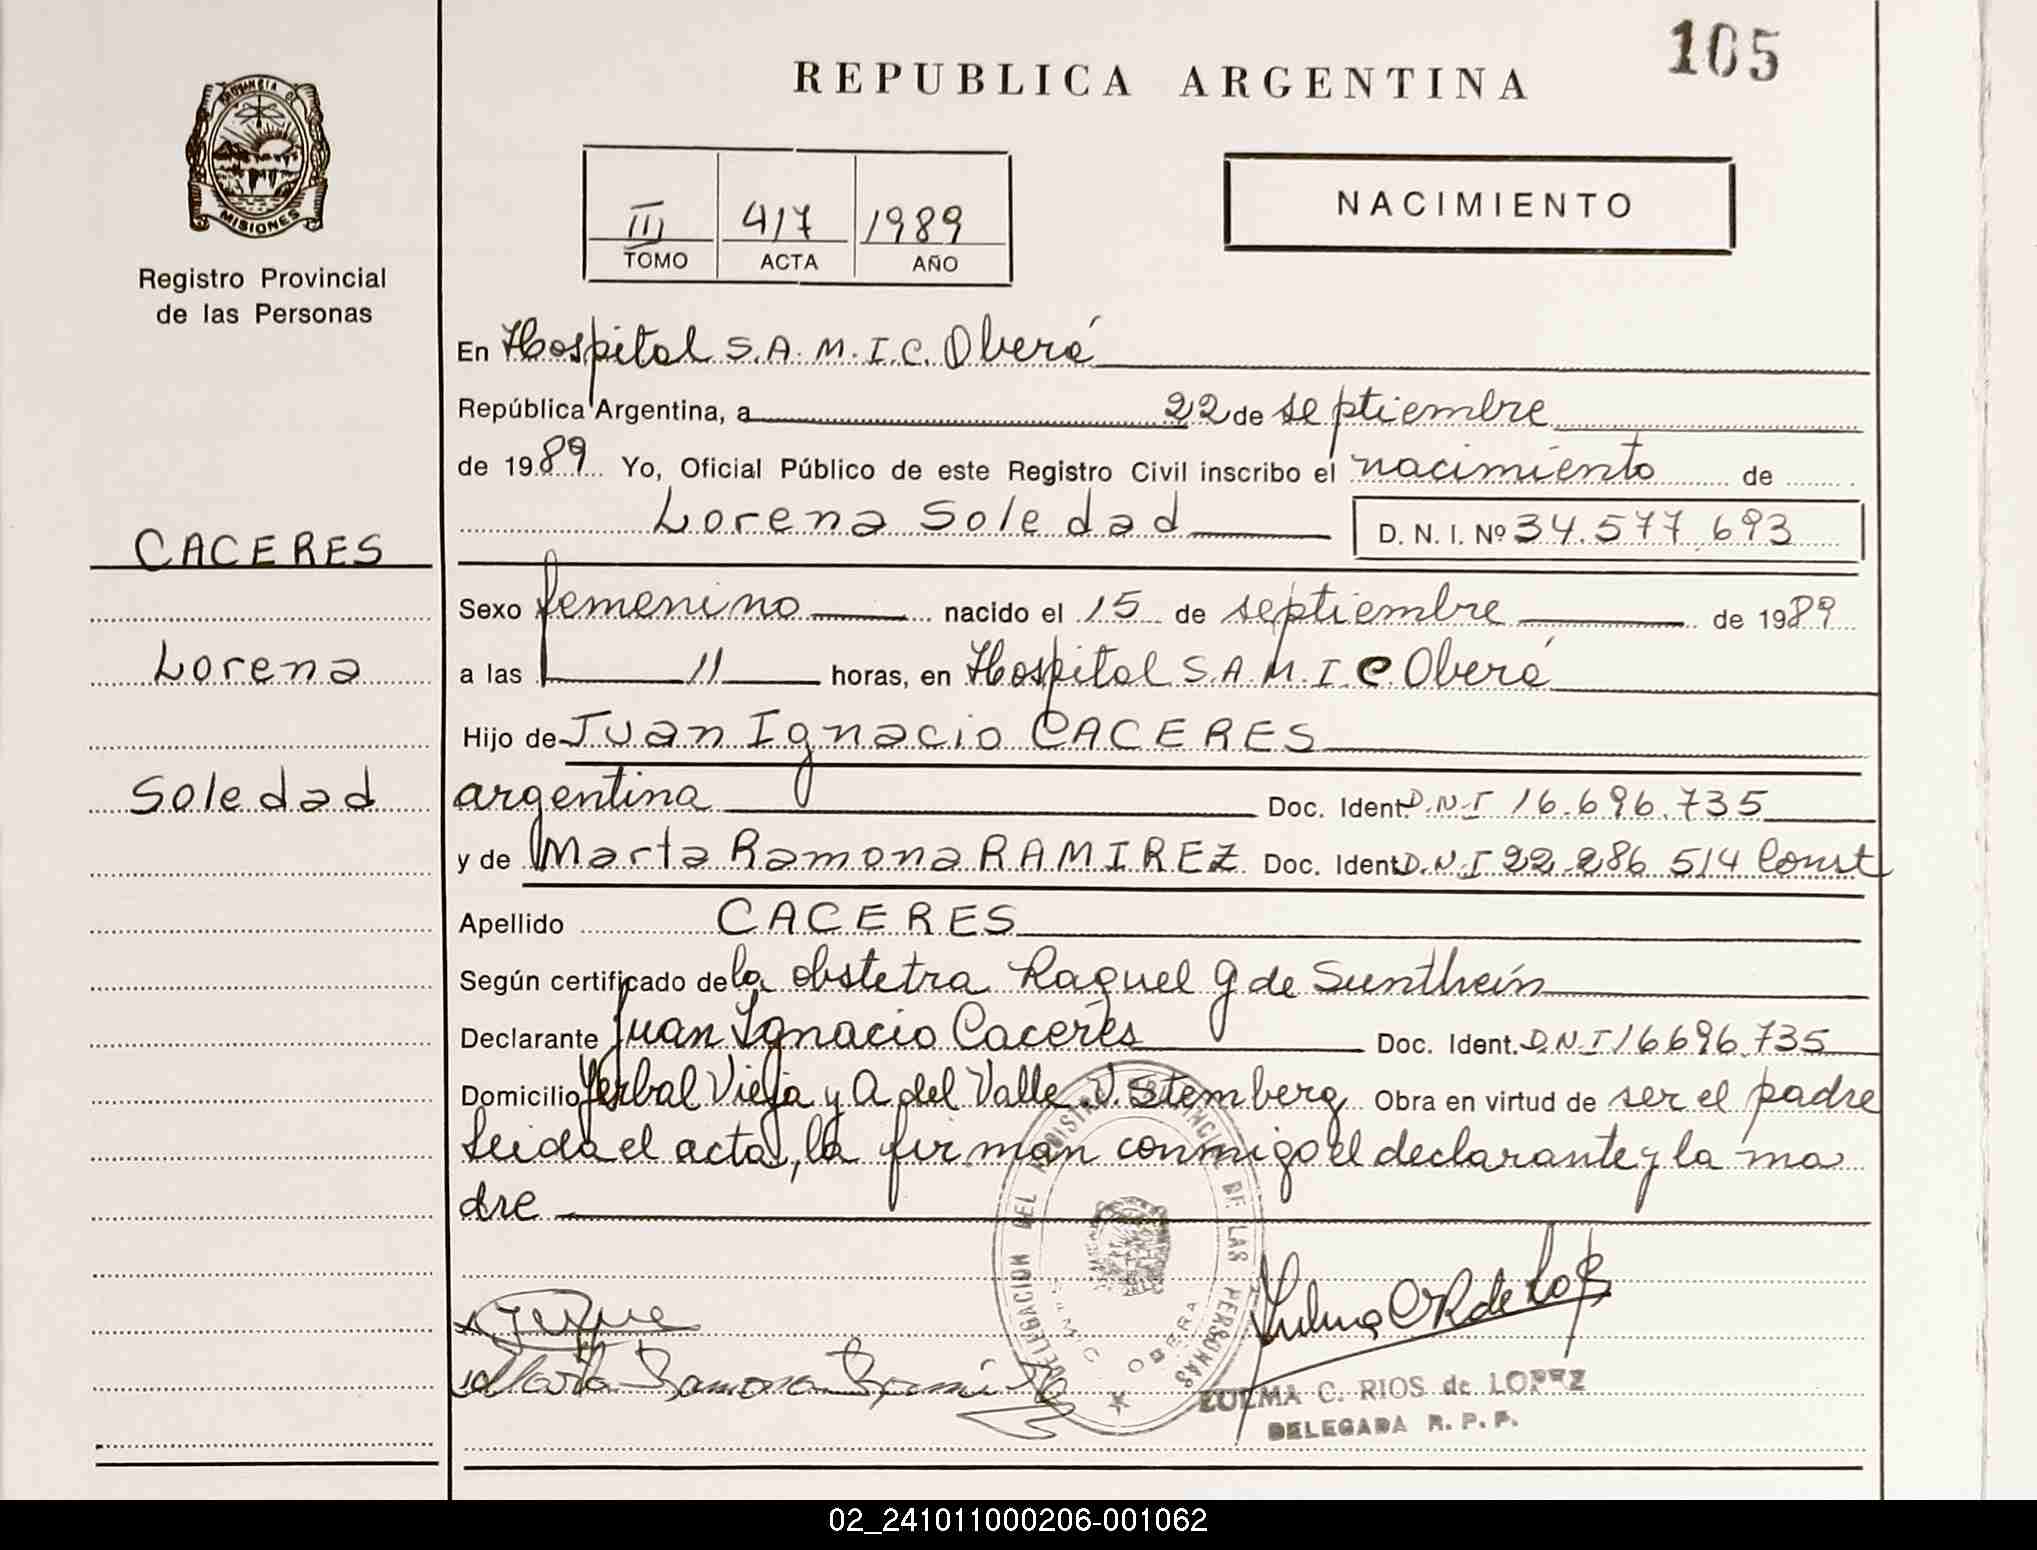 105
REPUBLICA ARGENTINA
PROVINCIA DE
MISIONES
Registro Provincial
de las Personas
III 417 1989
TOMO ACTA AÑO
NACIMIENTO
En Hospital S.A.M.I.C. Oberá
República Argentina, a 22 de septiembre
de 1989 Yo, Oficial Público de este Registro Civil inscribo el nacimiento de
Lorena Soledad D. N. I. Nº 34.577.693
CACERES
Lorena
Soledad
Sexo femenino nacido el 15 de septiembre de 1989
a las 11 horas, en Hospital S.A.M.I.C Oberá
Hijo de Juan Ignacio CACERES
argentina Doc. Ident. D.N.I 16.696.735
y de Marta Ramona RAMIREZ Doc. Ident. D.N.I 22.286 514 Const
Apellido CACERES
Según certificado de la obstetra Raquel G de Sunthein
Declarante Juan Ignacio Caceres Doc. Ident. D.N.I 16696.735
Domicilio Yerbal Viejo y A del Valle. V. Stemberg Obra en virtud de ser el padre
Leida el acta, la firman conmigo el declarante y la ma
dre
DELEGACION DEL REGISTRO PROVINCIAL DE LAS PERSONAS
SAMIC OBERA
Marta Ramona Ramirez
Zulma C R de Lop
ZULMA C. RIOS de LOPEZ
DELEGADA R. P. P.
02_241011000206-001062